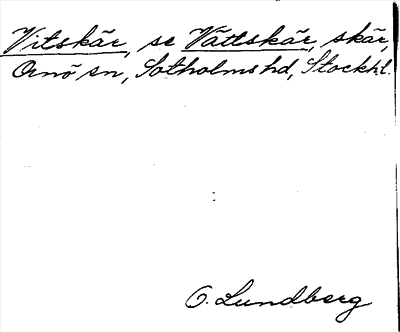 Vitskär, se Vättskär, skär,
Ornö sn, Sotholms hd, Stockh.l.
O. Lundberg